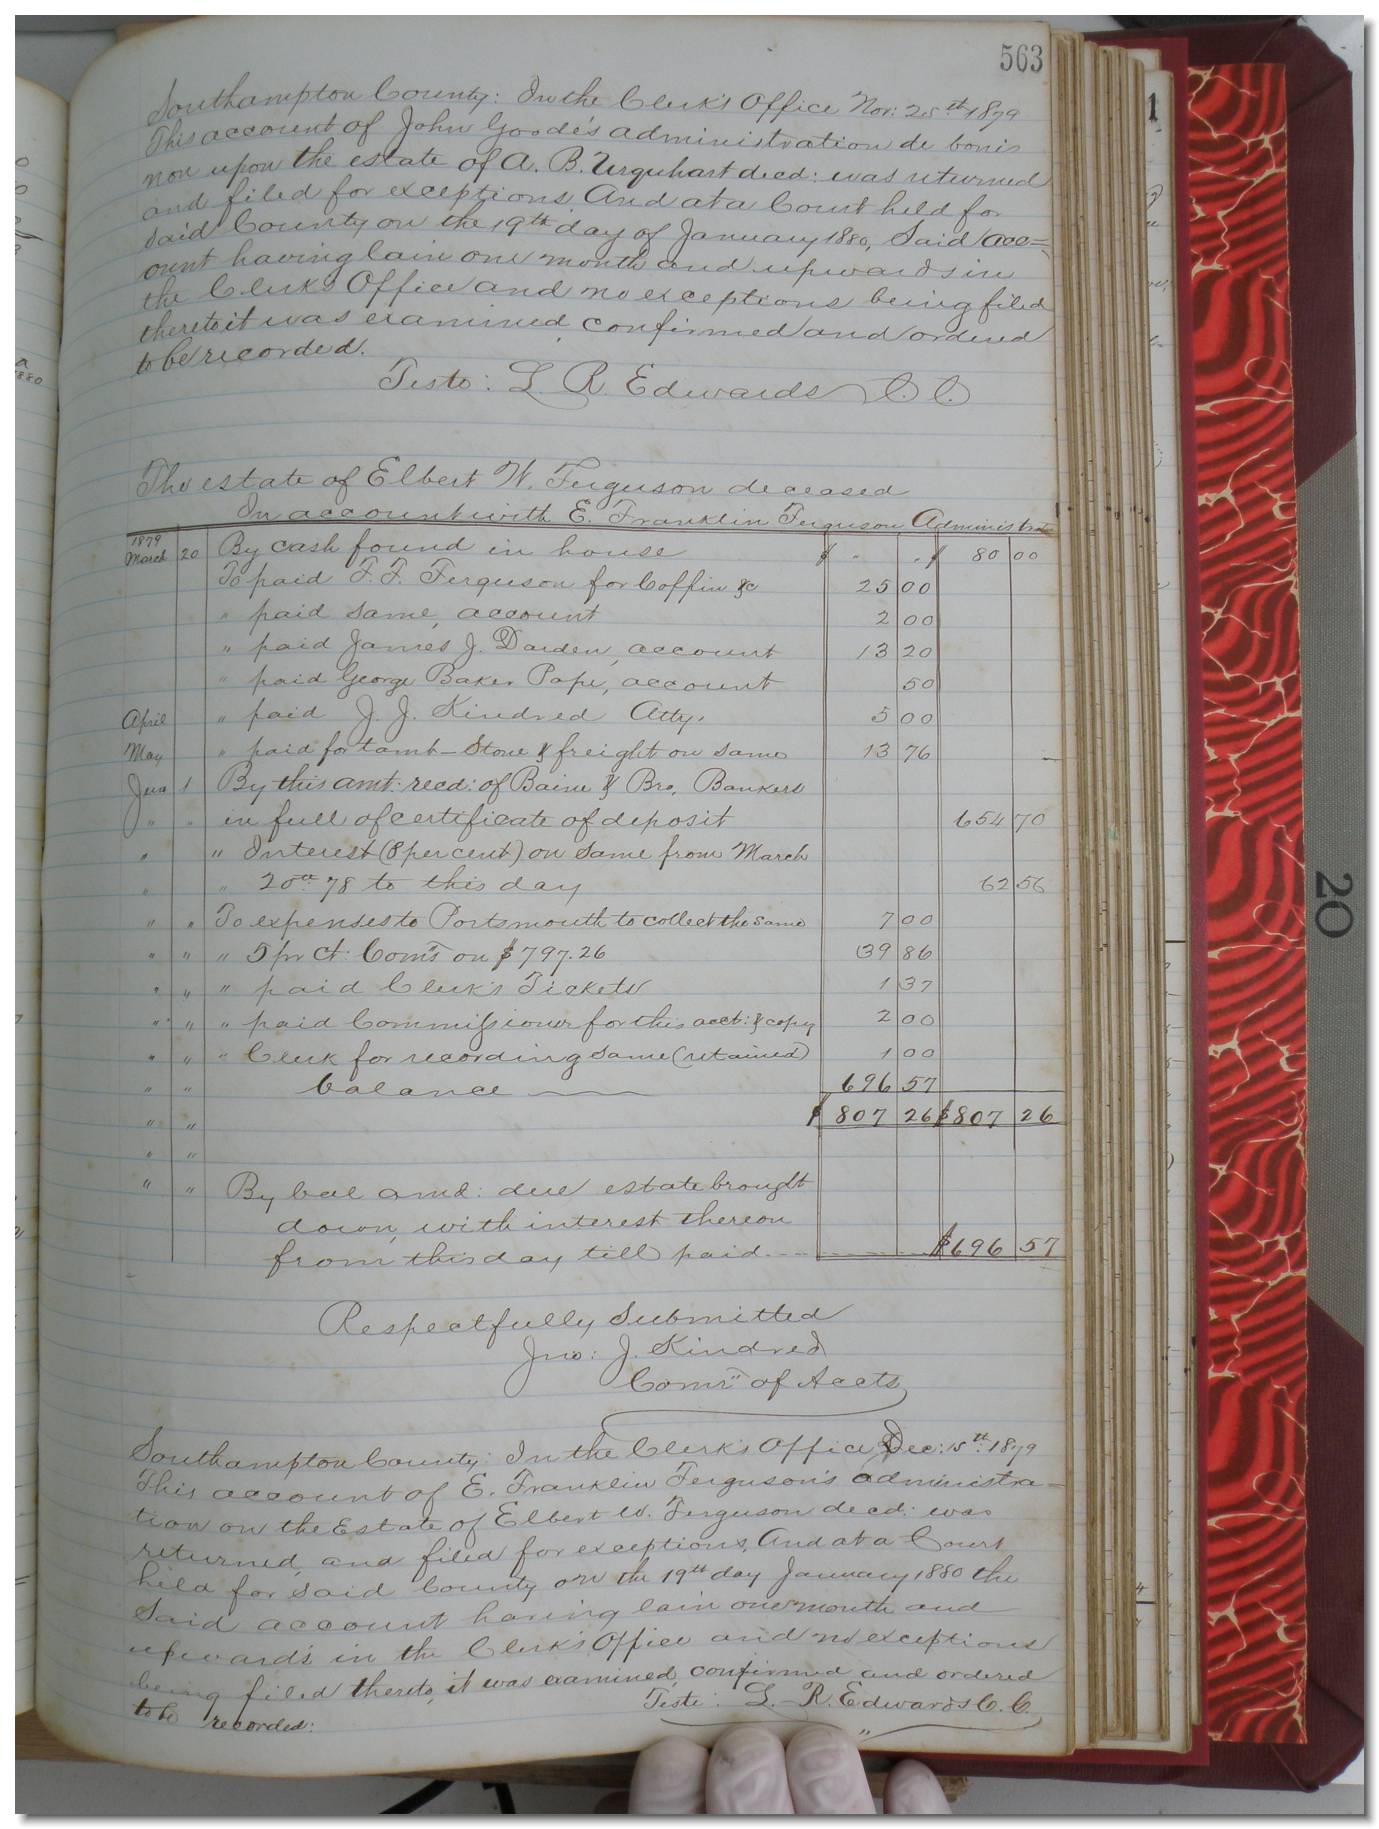 563
Southampton County: In the Clerk's Office Nov: 25th 1879
This account of John Goode's administration de bonis
non upon the estate of A. B. Urquhart decd: was returned
and filed for exceptions And at a Court held for
said County on the 19th day of January 1880, Said acc=
ount having lain one month and upwards in
the Clerk's Office and no exceptions being filed
thereto it was examined confirmed and ordered
to be recorded.
Teste: L. R. Edwards C. C.
The estate of Elbert W. Ferguson deceased
In account with E. Franklin Ferguson Administrator
1879 March 20 By cash found in house $ " " $ 80 00
To paid F. F. Ferguson for Coffin &c 25 00
" paid same, account 2 00
" paid James J. Darden, account 13 20
" paid George Baker Pope, account 50
April " paid J. J. Kindred Atty. 5 00
May " paid for tomb-Stone & freight on same 13 76
June 1 By this amt: recd: of Baine & Bro. Bankers
" " in full of certificate of deposit 654 70
" " Interest (8 per cent) on same from March
" " 20th 78 to this day 62 56
" " To expenses to Portsmouth to collect the same 7 00
" " " 5 pr ct: Coms on $797.26 39 86
" " " paid Clerk's Tickets 1 37
" " " paid Commissioner for this acct: & copy 2 00
" " " Clerk for recording same (retained) 1 00
" " balance 696 57
" " $ 807 26 $ 807 26
" "
" " By bal amt: due estate brought
down, with interest thereon
from this day till paid $696 57
Respectfully Submitted
Jno: J. Kindred
Comr of Accts
Southampton County: In the Clerk's Office Dec: 15th 1879
This account of E. Franklin Ferguson's administra-
tion on the Estate of Elbert W. Ferguson decd: was
returned, and filed for exceptions, And at a Court
held for said County on the 19th day January 1880 the
Said account having lain one month and
upwards in the Clerk's Office and no exceptions
being filed thereto, it was examined, confirmed and ordered
to be recorded:
Teste: L. R. Edwards C. C.
1
20